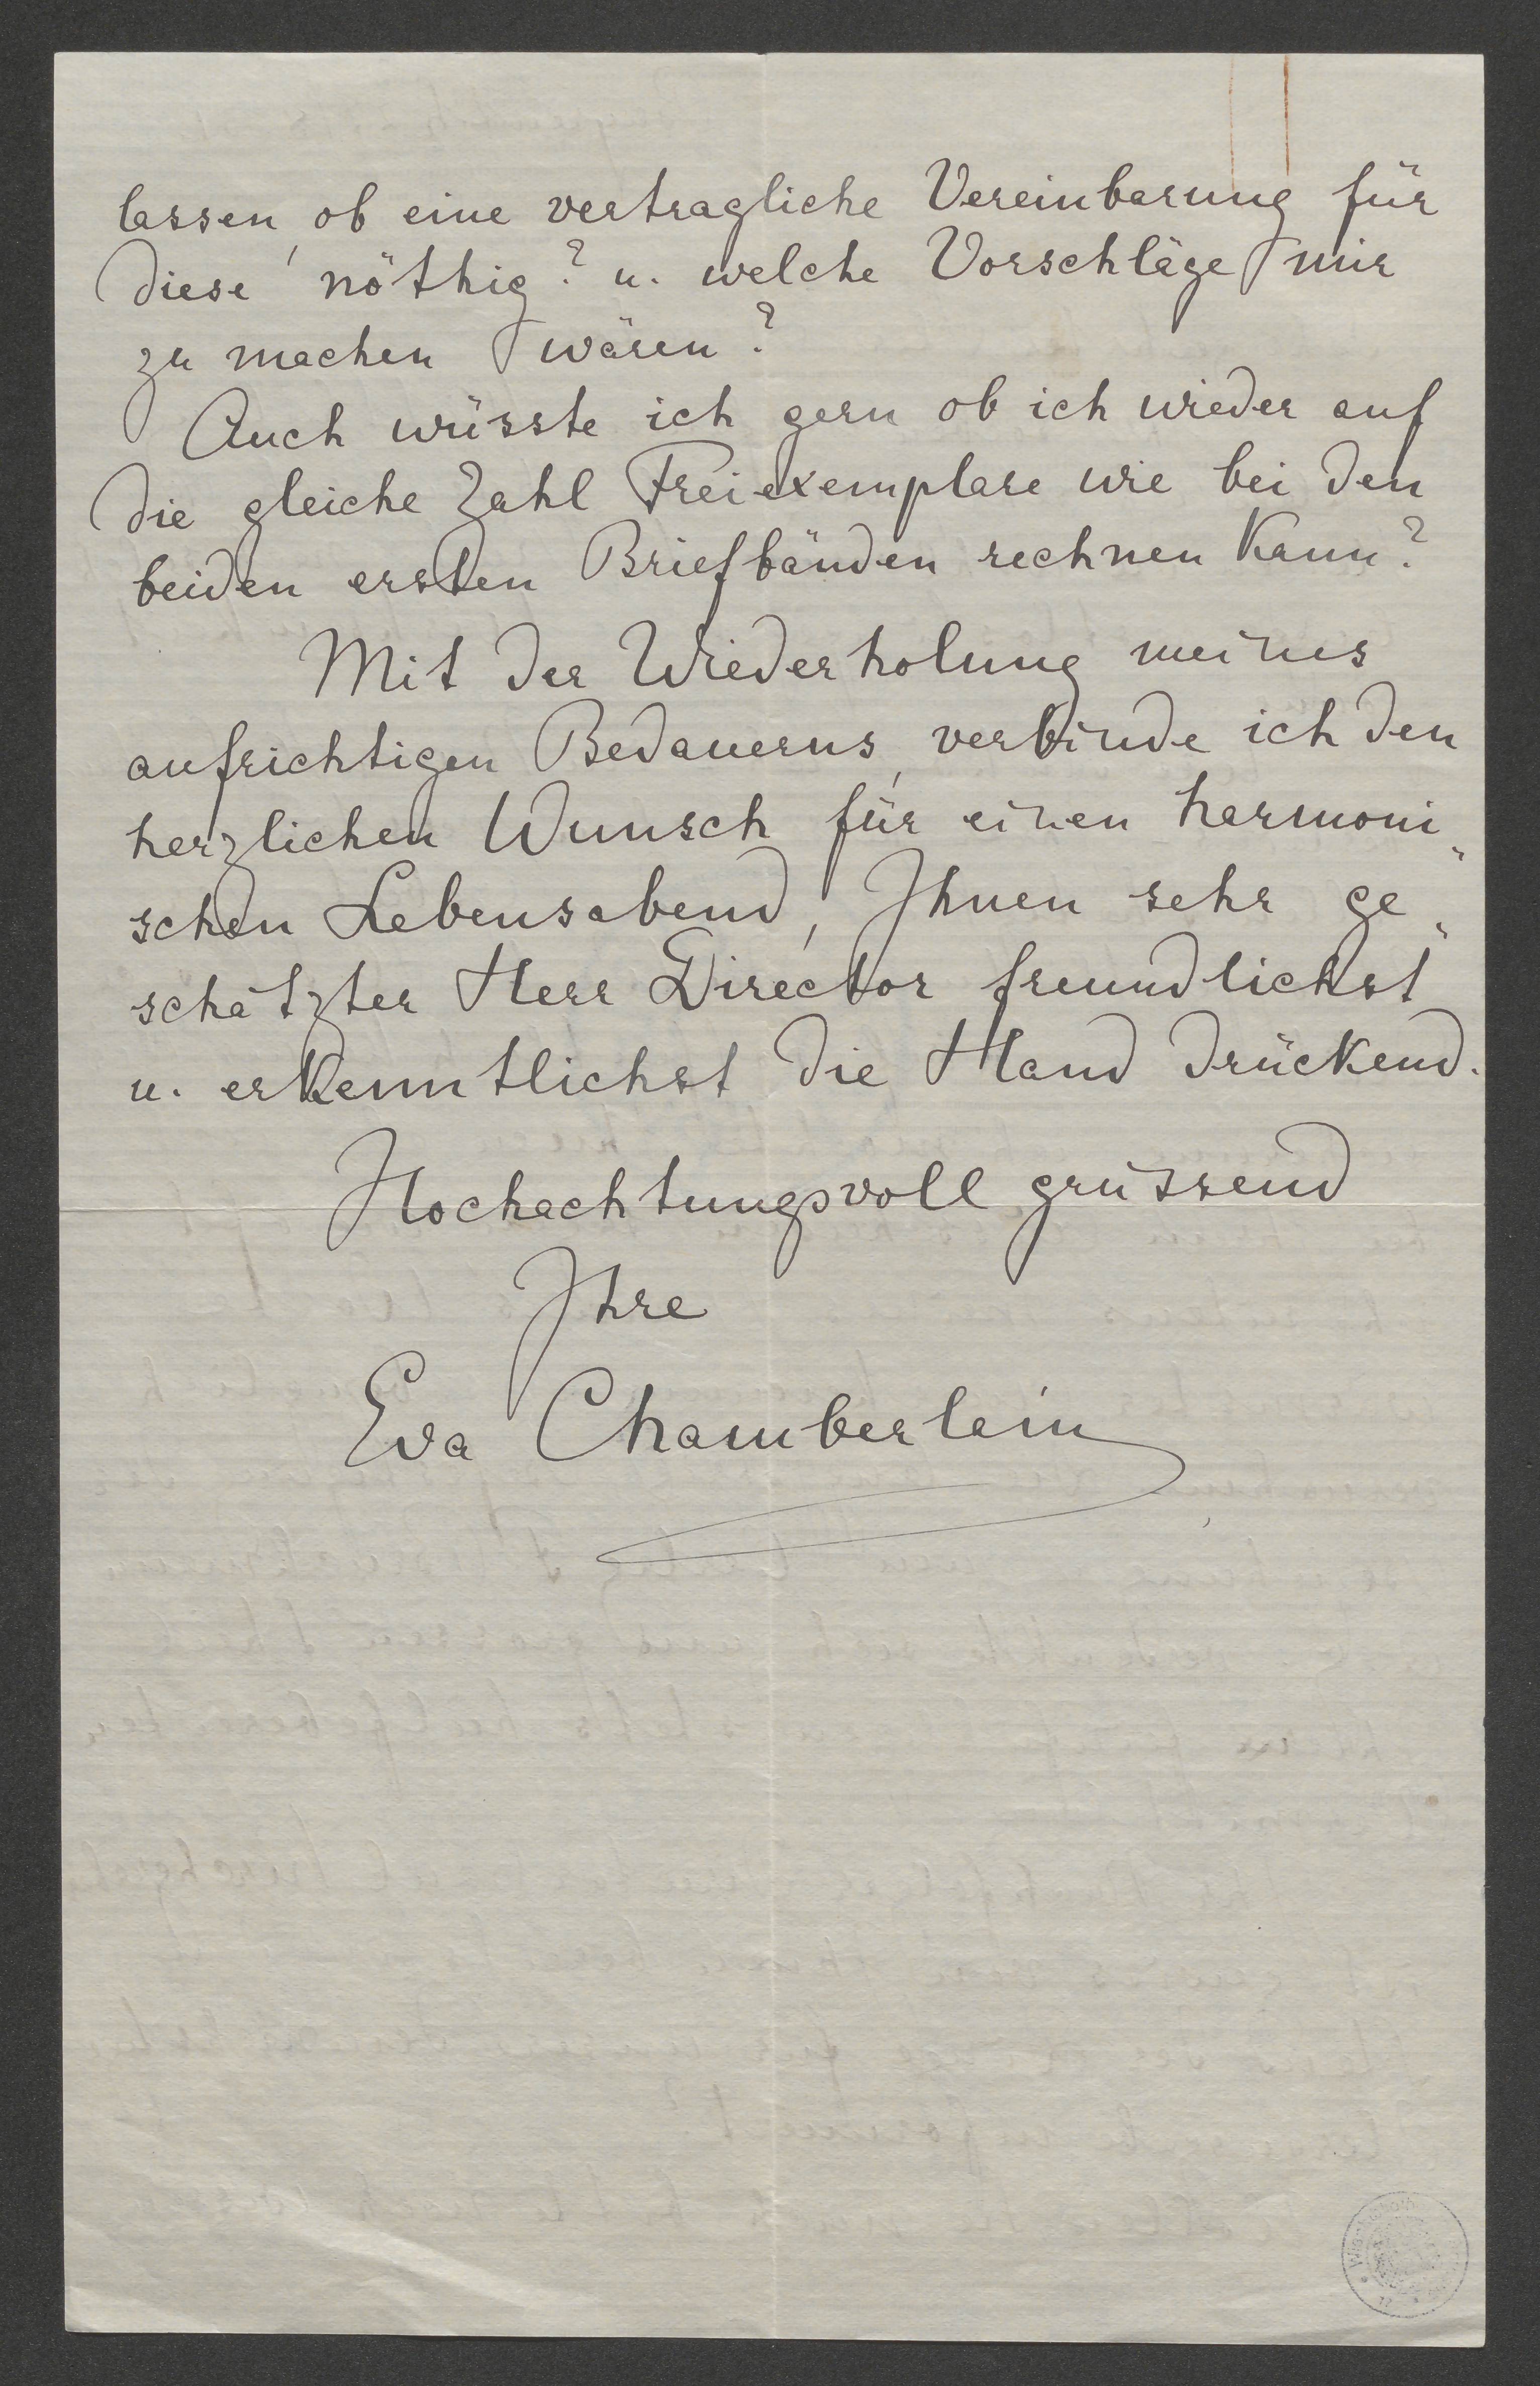 lassen, ob eine vertragliche Vereinbarung für
diese nöthig? u. welche Vorschläge mir
zu machen wären?
Auch wüsste ich gern ob ich wieder auf
die gleiche Zahl Freiexemplare wie bei den
beiden ersten Briefbänden rechnen kann?
Mit der Wiederholung meines
aufrichtigen Bedauerns, verbinde ich den
herzlichen Wunsch für einen harmoni„
schen Lebensabend, Ihnen sehr ge„
schätzter Herr Director freundlichst
u. erkenntlichst die Hand drückend.
Hochachtungsvoll grüssend
Ihre
Eva Chamberlain